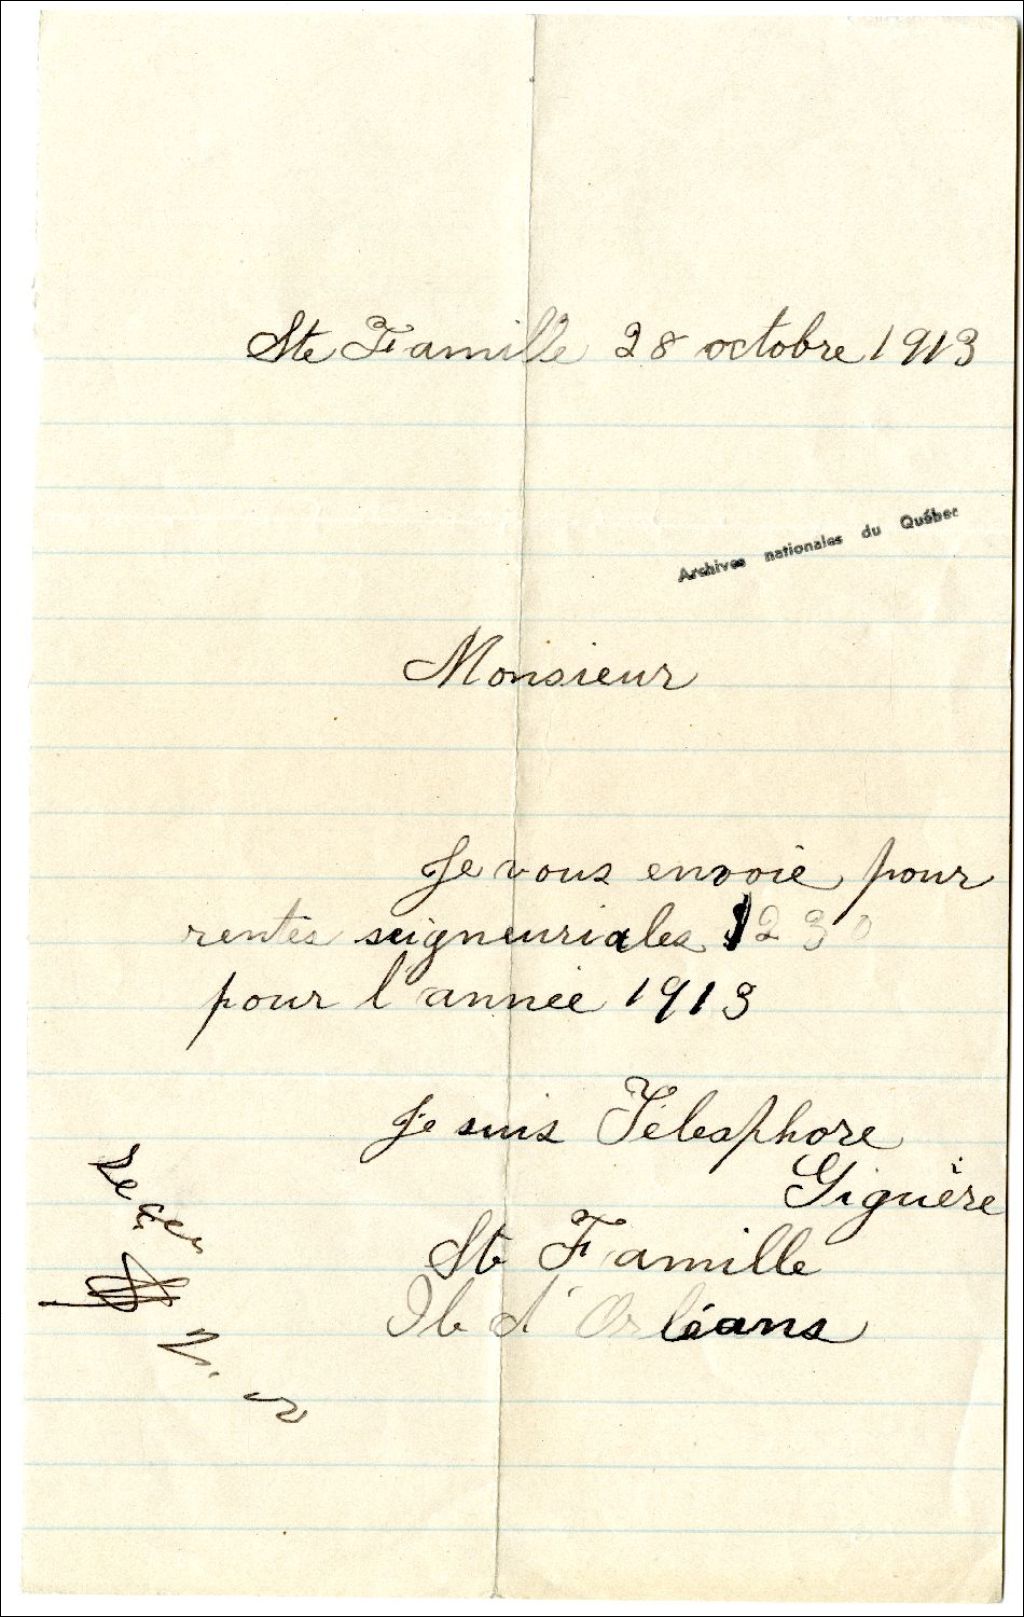 Ste Famille 28 octobre 1913
Archives nationales du Québec
Monsieur
Je vous envoie pour
rentes seigneuriales $2 30
pour l'année 1913
Je suis Télesphore
Giguère
Ste Famille
Ile d'Orléans